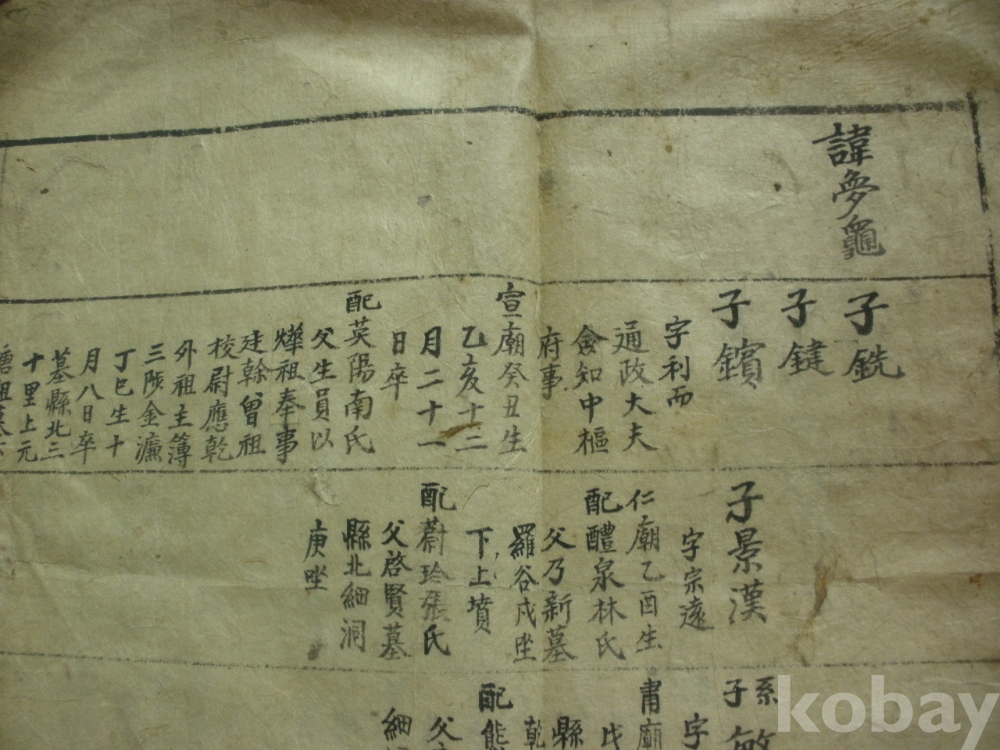 諱夢龜
子銑
子鍵
子鑌
字利而
通政大夫
僉知中樞
府事
宣廟癸丑生
乙亥十二
月二十一
日卒
配英陽南氏
父生員以
燁祖奉事
廷翰曾祖
校尉應乾
外祖主簿
三陟金濂
丁巳生十
月八日卒
墓縣北三
十里上元
子景漢
字宗遠
仁廟乙酉生
配醴泉林氏
父乃新墓
羅谷戌坐
下上墳
配蔚珍張氏
父啓賢墓
縣北細洞
庚坐
系
子敏
字
肅廟
戊
縣
乾
配
父
細
kobay